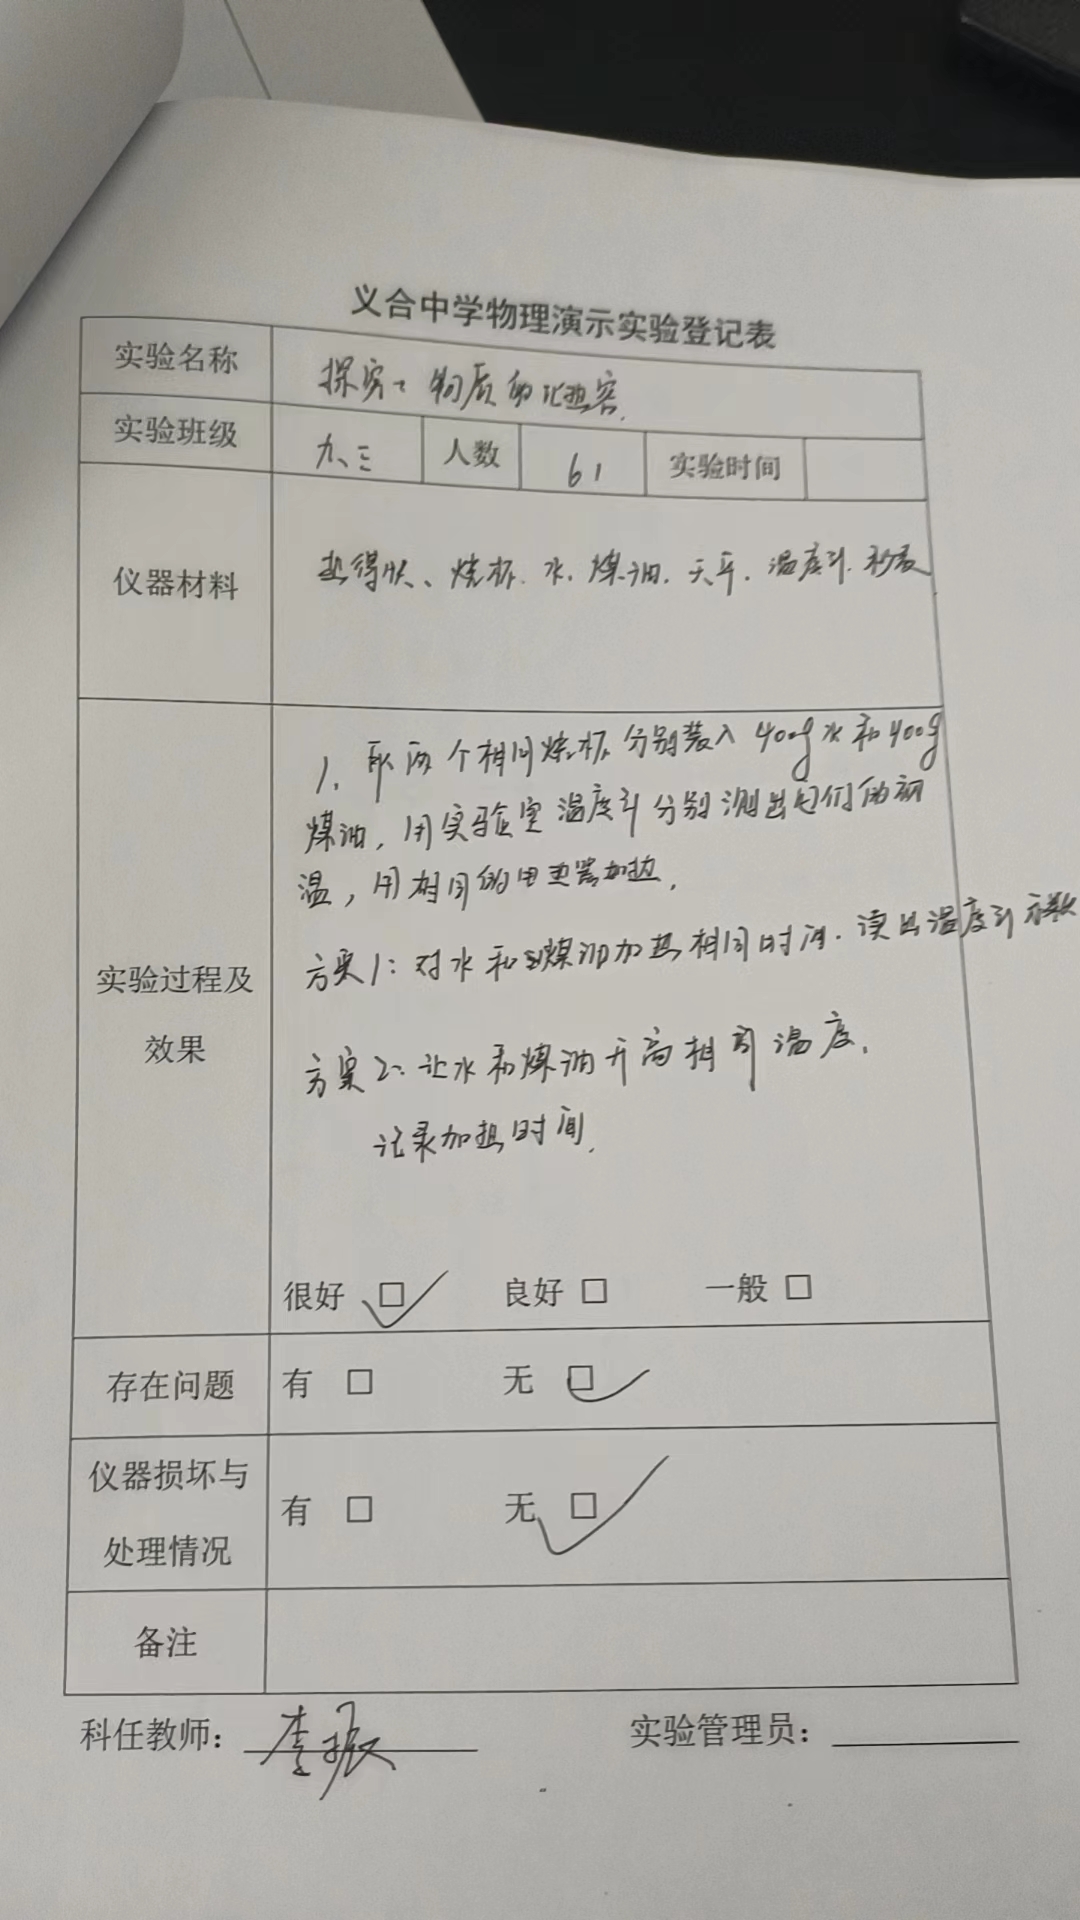 义合中学物理演示实验登记表
实验名称 探究：物质的比热容
实验班级 九、三 人数 61 实验时间
仪器材料 热得快、烧杯、水、煤油、天平、温度计、秒表
1、取两个相同烧杯分别装入400g水和400g
煤油，用实验室温度计分别测出它们的初
温，用相同的电热器加热.
方案1：对水和煤油加热相同时间.读出温度计示数
实验过程及
效果
方案2：让水和煤油升高相同温度.
记录加热时间.
很好 □ 良好 □ 一般 □
存在问题 有 □ 无 □
仪器损坏与
处理情况 有 □ 无 □
备注
科任教师：李振 实验管理员：